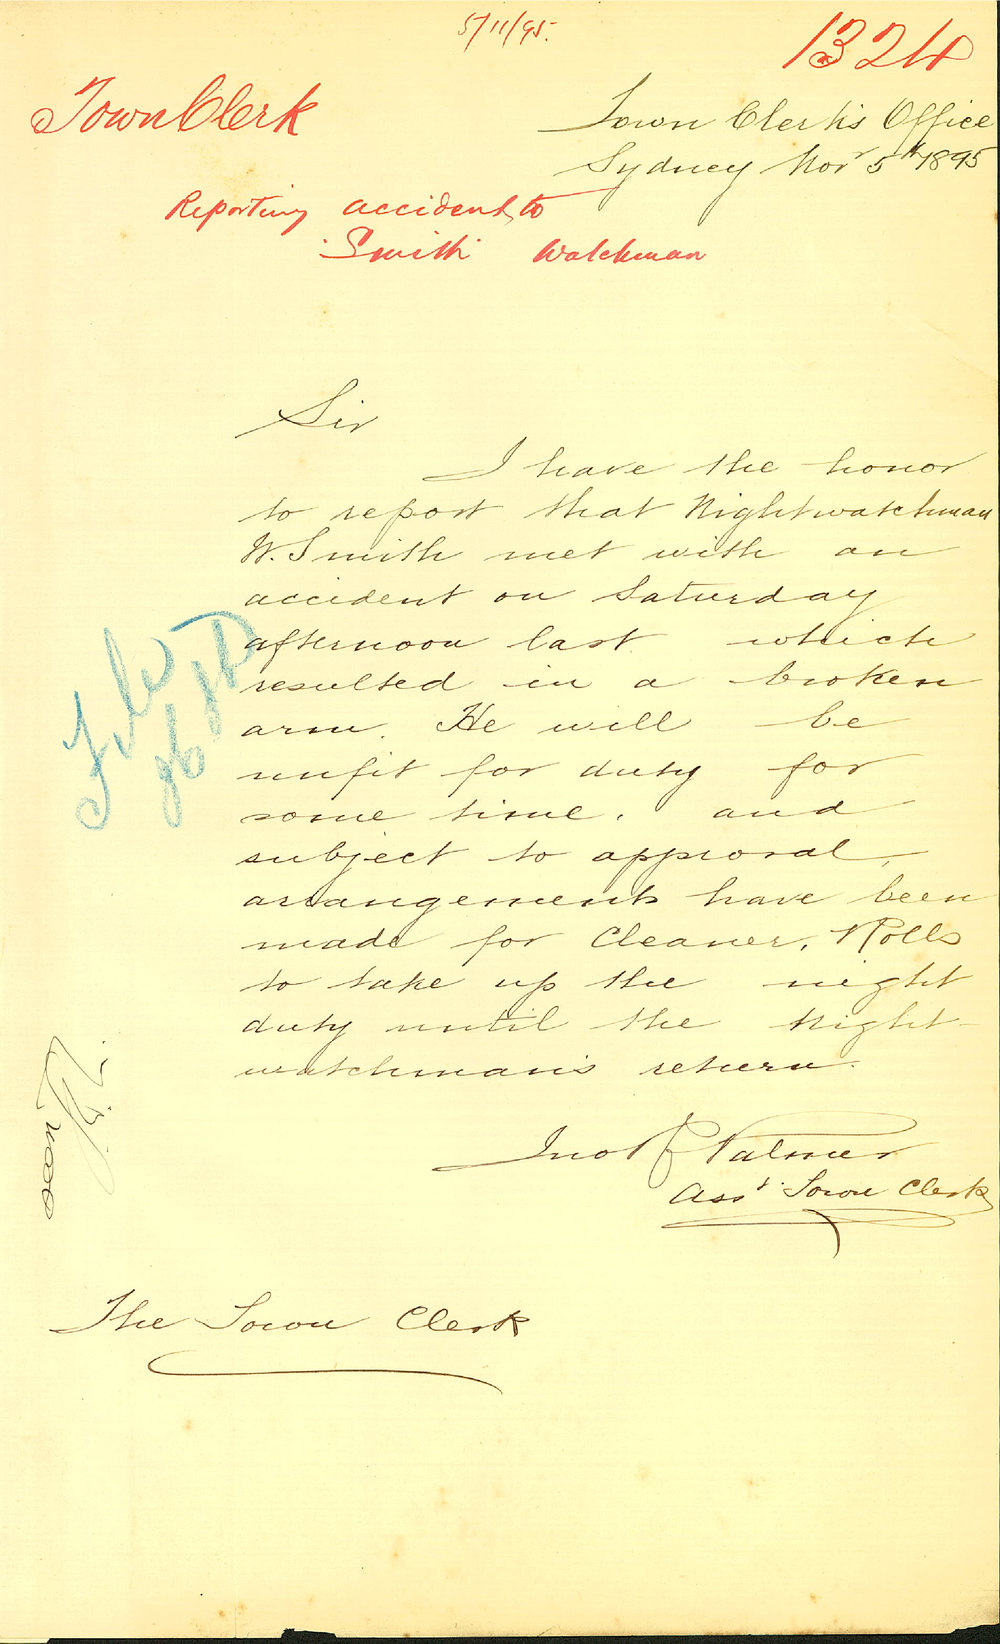 5/11/95.
1324
Town Clerk
Town Clerk's Office
Sydney Novr 5th 1895
Reporting accident to
Smith Watchman
Sir
I have the honor
to report that Nightwatchman
W. Smith met with an
accident on Saturday
afternoon last which
resulted in a broken
arm. He will be
unfit for duty for
some time. and
subject to approval,
arrangements have been
made for Cleaner, Rolls
to take up the night
duty until the Night-
watchman's return.
Palmer
Asst. Town Clerk
The Town Clerk
File